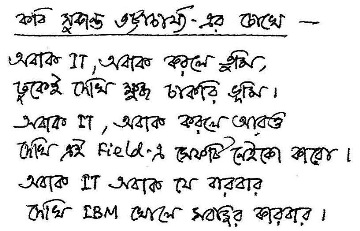 কবি সুকান্ত ভট্টাচার্য্য-এর চোখে —
অবাক IT, অবাক করলে তুমি,
ঢুকেই দেখি ক্ষুব্ধ চাকরি ভূমি।
অবাক IT, অবাক করলে আরও
দেখি এই Field-এ সেফটি নেইকো কারো।
অবাক IT অবাক যে বারবার
দেখি IBM খোলে সবাইর কারবার।